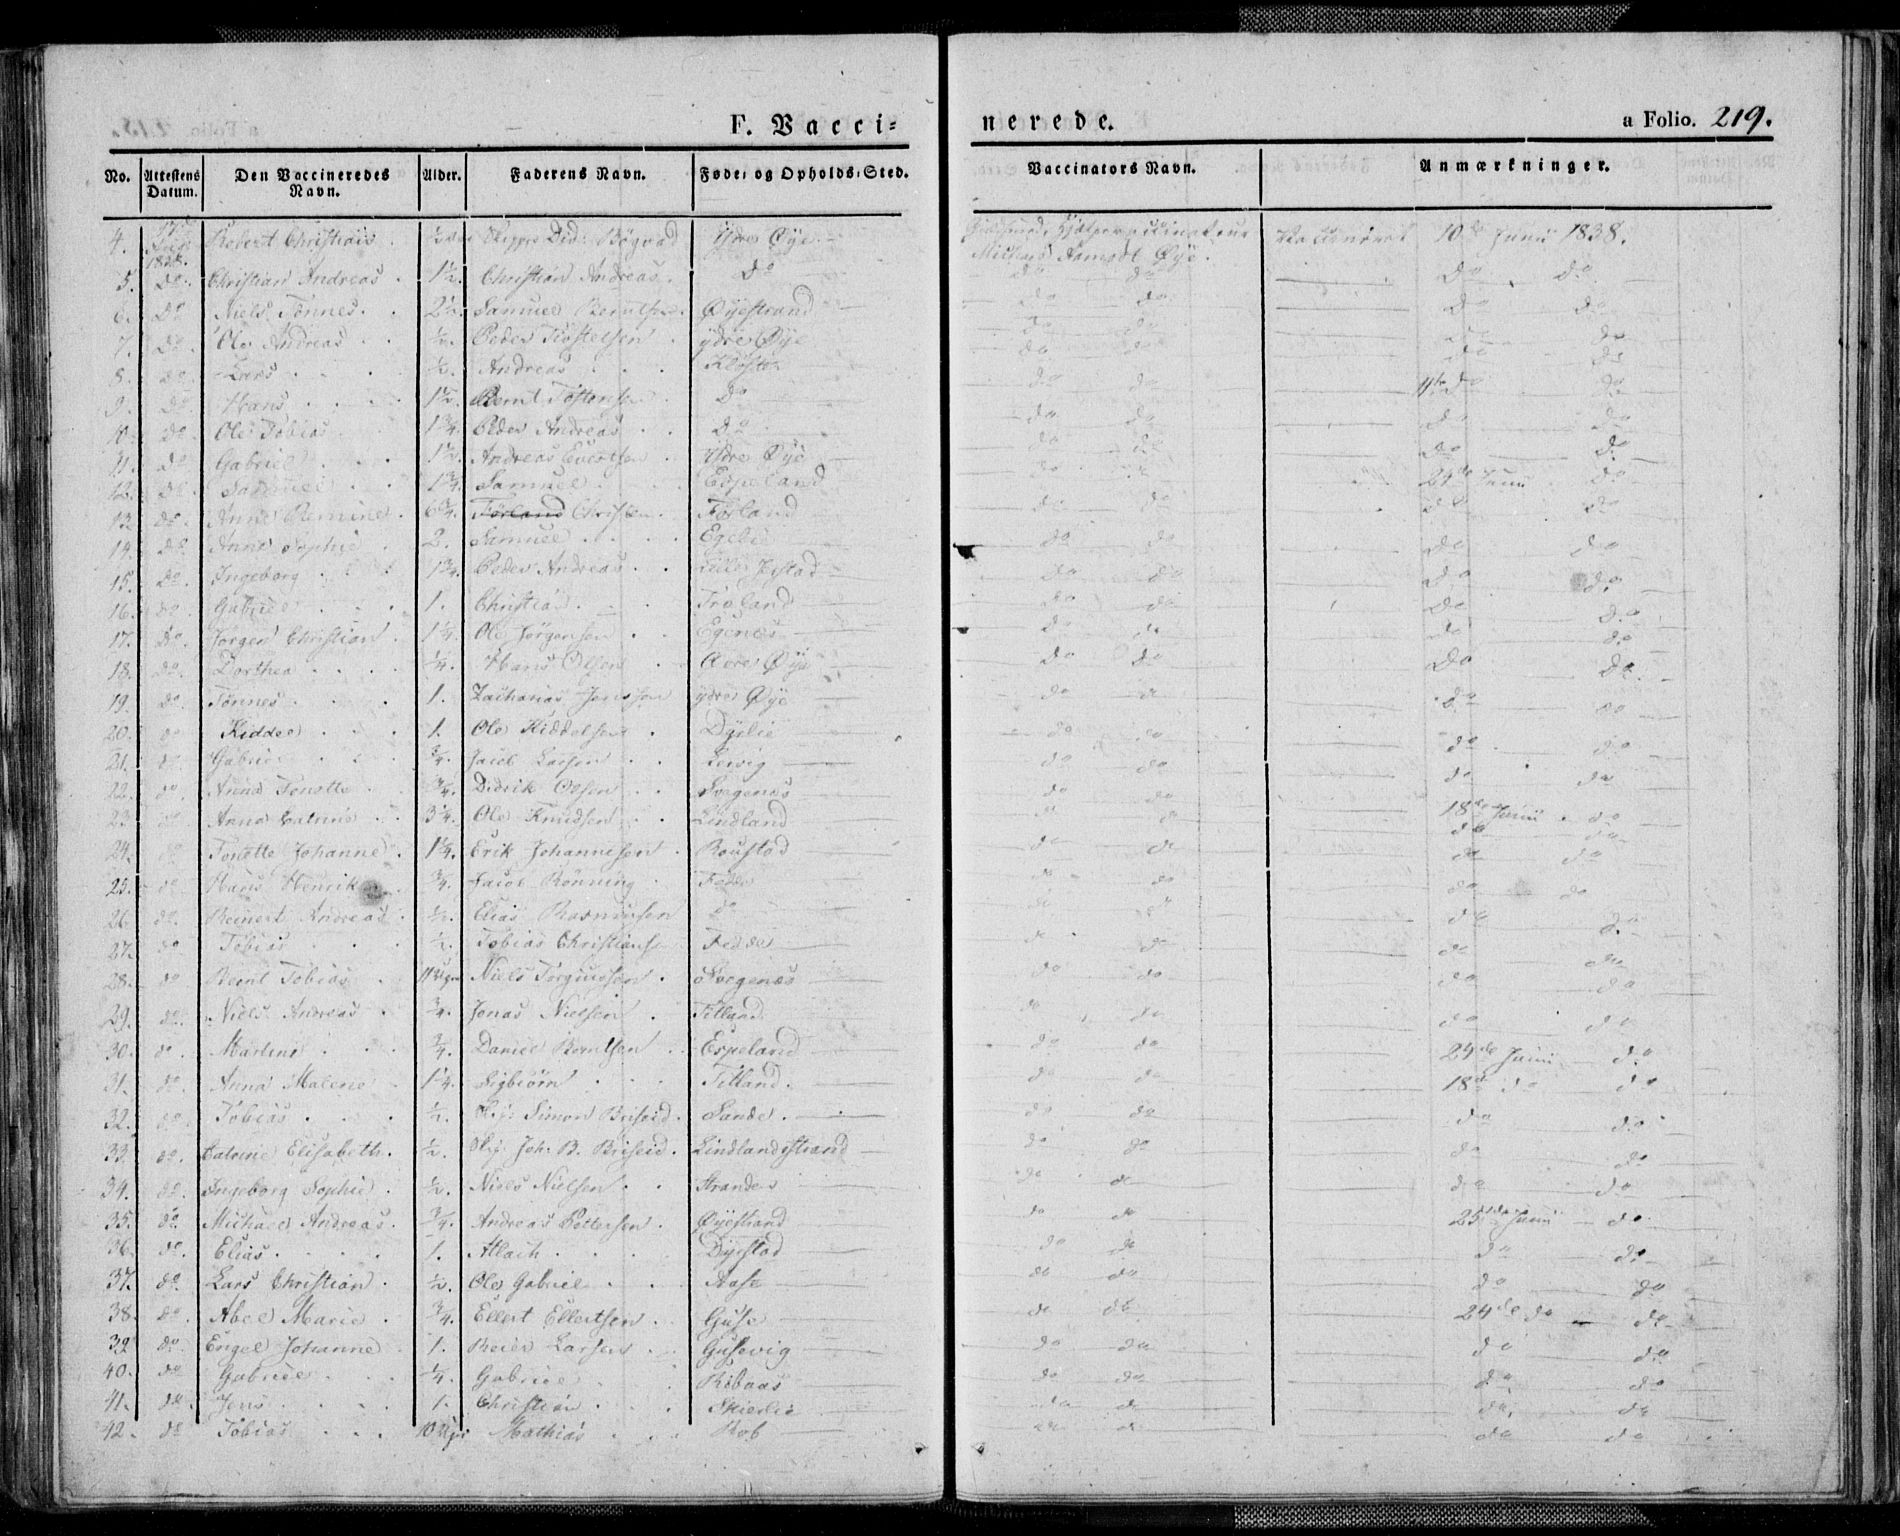 F. Vacci=
nerede.
a Folio. 219.
No. Attestens Datum. Den Vaccineredes Navn. Alder. Faderens Navn. Føde- og Opholds-Sted. Vaccinators Navn. Anmærkninger.
4. 1838. Robert Christian. 1/2 Skipper Did: Bøgvad Ydre Øye Hjælpevaccinateur 10de Junii 1838.
Michael Aamodt Øye.
5. Do. Christian Andreas. 1 1/2. Christian Andreas. Do Do Do Do Do
6. Do Niels Tønnes. 2 1/2. Samuel Berntsen. Øyestrand Do Do Do Do
7. Do. Ole Andreas 1/2. Peder ydre Øye do do do do
8. do. Lars 1/2. Andreas Kloster do do do do
9. Do. Hans 1 1/2. Bernt Tostensen Do do do 11te do do
10. do. Ole Tobias 1 3/4. Peder Andreas Do do do do do
11. Do Gabriel 1 1/2. Andreas Evertsen Ydre Øye do do do do
12. do. Samuel 1 3/4. Samuel Espeland do 24de Junii do
13. do. Anne 6 3/4. Christen Førland do do do do
14. do Anne Sophie 2. Samuel do do do do
15. do. Ingeborg 1 3/4. Peder Andreas do do do do
16. do. Gabriel 1. Christian Frøland do do do do
17. do Jørgen Christian 1 1/4. Ole Jørgensen Egenes do do do do
18. do. Dorthea 1/4. Hans Olsen Øvre Øye do do do do
19. do. Tønnes 1. Zacharias ydre Øye do do do do
20. do Kiddel 1. Ole Kiddelsen Dyrlie do do do do
21. do. Gabriel 3/4. Jacob Larsen Leivig do do do do
22. do. Anna Tonette 3/4. Didrik Olsen Svegenæs do do do do
23. do Anne Catrine 3 1/4. Ole Knudsen Lindland do do 18de Junii do
24. do Tonette Johanne. 1 1/4. Erik Johannesen Roustad do do do do
25. do Hans Henrik 3/4. Jacob Rønning Fedde do do do do
26 do. Reinert Andreas 1/2. Elias Rasmusen do do do do do
27. do Tobias 1/2. Tobias Christiansen Fedde do do do do
28. do Bernt Tobias 11 Uger Niels Torgiusson Svegenæs do do do do
29. do. Niels Andreas 3/4. Jonas Nielsen Titland do do do do
30. do. Martine 3/4. Daniel Berntsen Espeland do do 24de Junii do
31. do. Anna Malene 1 1/4. Sigbiørn Titland. do do 18de do do
32. do Tobias 1/2. Simon Briseid. Sande. do do do do
33. do. Catrine Elisabeth. 1/2. Joh: B. Briseid. Lindlandstrand do do do do
34. do. Ingeborg Sophie 1/2. Niels Nielsen Strande do do do do
35. do. Michael Andreas. 3/4. Andreas Pettersen. Øyestrand do do 25de Junii do
36. do. Elias. 1. Atlach Dyrstad do do do do
37. do. Lars Christian 1/2. Ole Gabriel Aase do do do do
38. do. Abel Marie 3/4. Ellert Ellertsen Guse do do 24de do do
39 do Engel Johanne 1. Reier Larsen Gusevig do do do do
40. do Gabriel 1/4. Gabriel do do do do
41. do. Jens 1. Christian Skierlie do do do do
42. do Tobias 10 Uger Mathias Rob do do do do